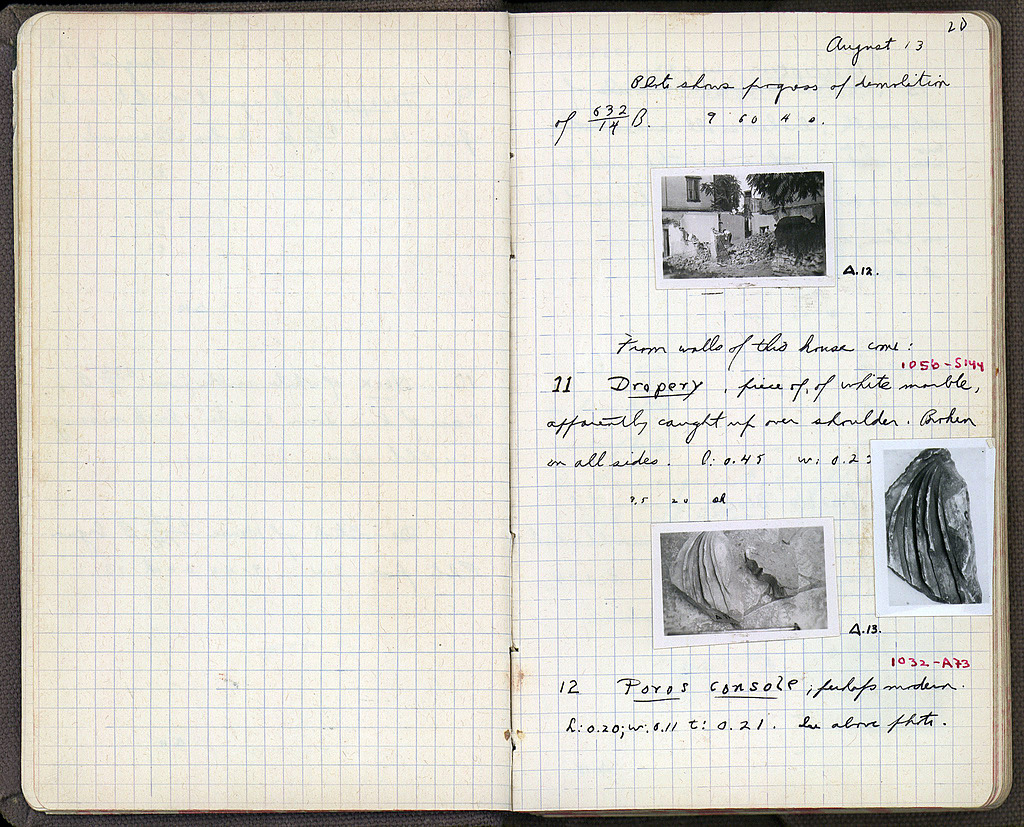 20
August 13
Photo shows progress of demolition
of 632/14 B. 9 60 4 0.
Δ.12.
From walls of this house come:
1056-S144
11 Drapery, piece of, of white marble,
apparently caught up over shoulder. Broken
on all sides. l: 0.45 w: 0.2
20
Δ.13.
1032-A73
12 Poros console; perhaps modern.
h: 0.20; w: 0.11 t: 0.21. See above photo.